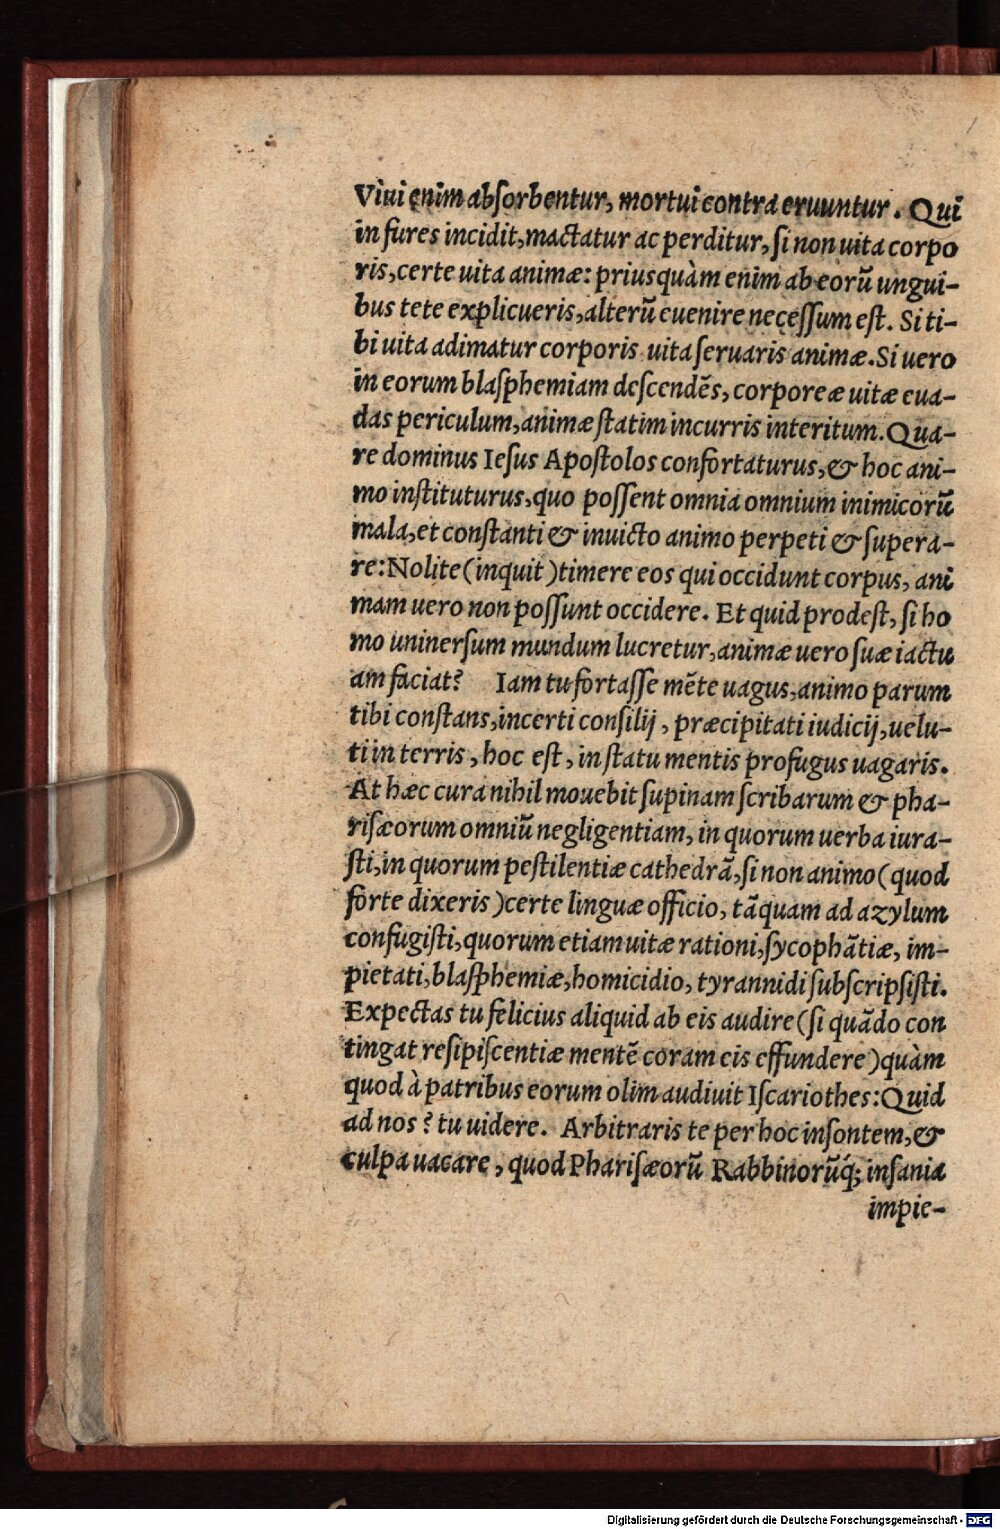 Viui enim abſorbentur, mortui contra eruuntur. Qui
in fures incidit, mactatur ac perditur, ſi non uita corpo
ris, certe uita animæ: priusquàm enim ab eorũ ungui-
bus tete explicueris, alterũ euenire neceſſum eſt. Si ti-
bi uita adimatur corporis uita ſeruaris animæ. Si uero
in eorum blaſphemiam deſcendẽs, corporeæ uitæ eua-
das periculum, animæ ſtatim incurris interitum. Qua-
re dominus Ieſus Apoſtolos confortaturus, & hoc ani-
mo inſtituturus, quo poſſent omnia omnium inimicorũ
mala, et conſtanti & inuicto animo perpeti & ſupera-
re: Nolite (inquit) timere eos qui occidunt corpus, ani
mam uero non poſſunt occidere. Et quid prodeſt, ſi ho
mo uninerſum mundum lucretur, animæ uero ſuæ iactu
am faciat? Iam tu fortaſſe mẽte uagus, animo parum
tibi conſtans, incerti conſilij, præcipitati iudicij, uelu-
ti in terris, hoc eſt, in ſtatu mentis profugus uagaris.
At hæc cura nihil mouebit ſupinam ſcribarum & pha-
riſæorum omniũ negligentiam, in quorum uerba iura-
ſti, in quorum peſtilentiæ cathedrã, ſi non animo (quod
forte dixeris) certe linguæ officio, tãquam ad azylum
confugiſti, quorum etiam uitæ rationi, ſycophãtiæ, im-
pietati, blaſphemiæ, homicidio, tyrannidi ſubſcripſiſti.
Expectas tu felicius aliquid ab eis audire (ſi quãdo con
tingat reſipiſcentiæ mentẽ coram eis effundere) quàm
quod à patribus eorum olim audiuit Iſcariothes: Quid
ad nos? tu uidere. Arbitraris te per hoc inſontem, &
culpa uacare, quod Phariſæorũ Rabbinorũq́; inſania
impie-
Digitalisierung gefördert durch die Deutsche Forschungsgemeinschaft - DFG